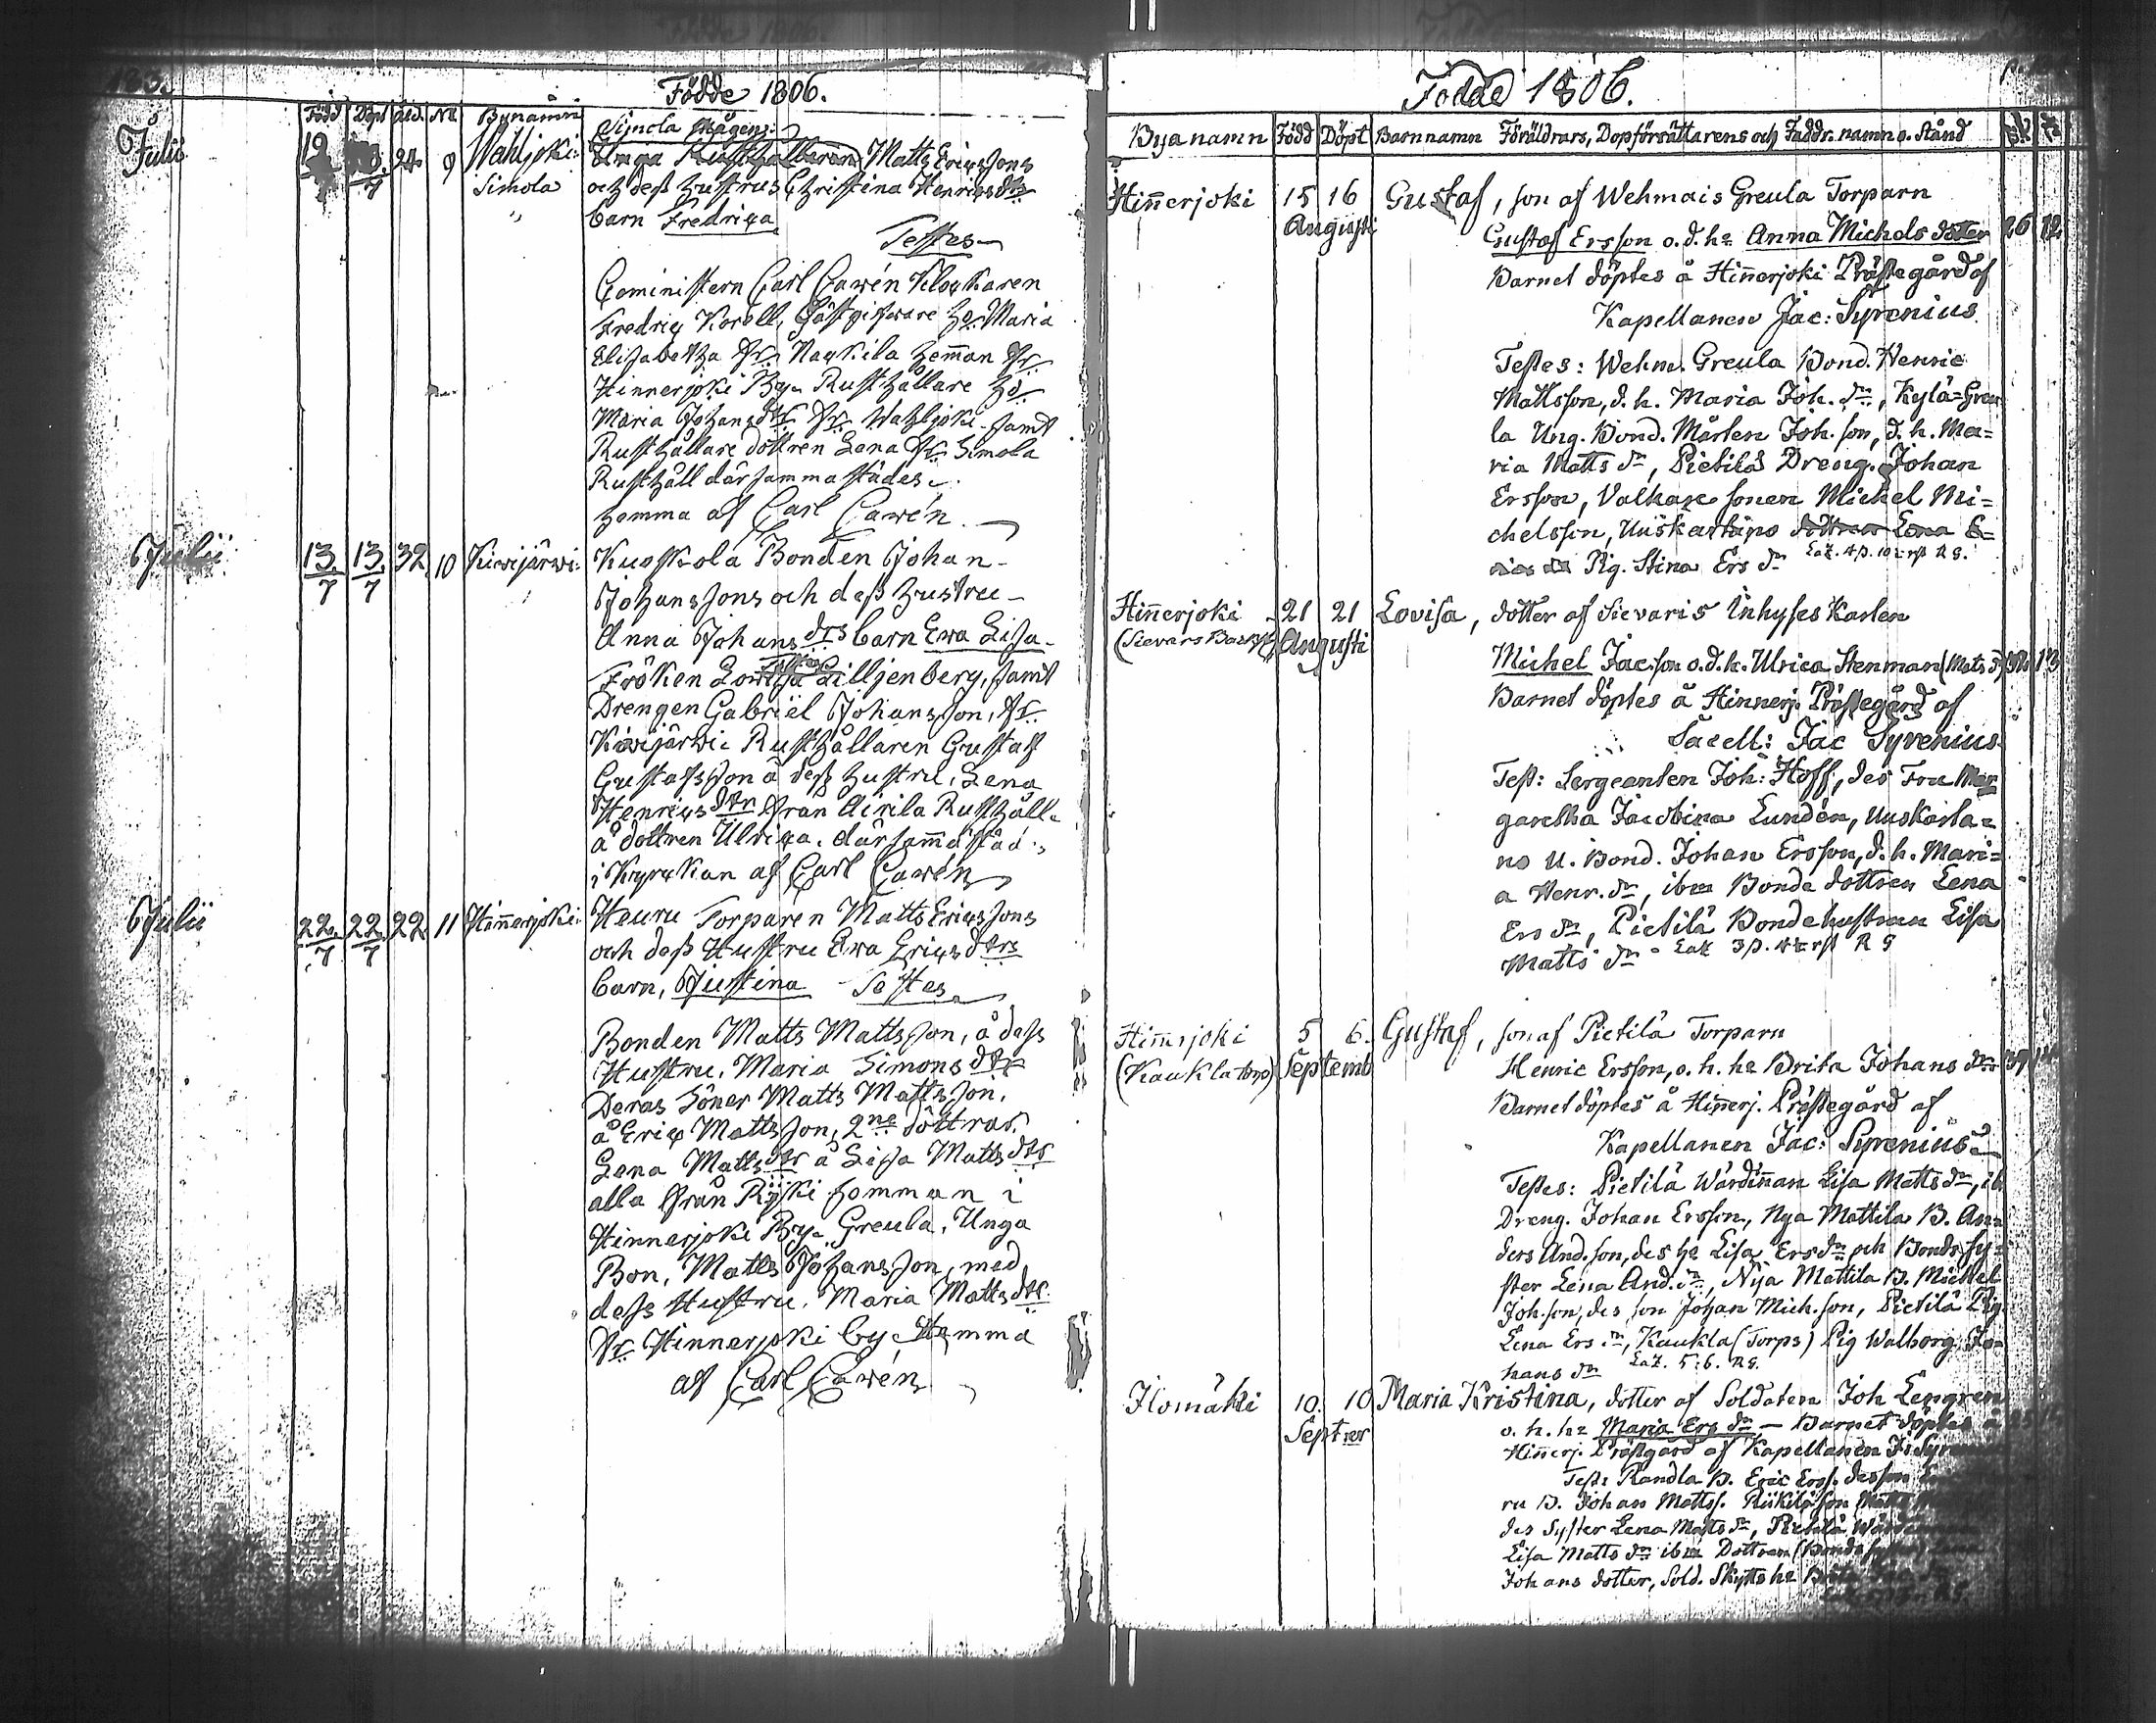 Födde 1806.
Född Döpt åld. No Bynamn
Julii 12 7 24. 9 Wahljoki: Simola Mågens:
Simola Unga Rusthållaren Matts Ericssons
och dess hustrus Christina Henricsdr
barn Fredrica
Testes
Cominstern Carl Cawén Klockaren
Fredric Korell, Gästgifvare Ho Maria
Elisabetha fr. Naukila hemman fr.
Hinnerjoki By. Rusthållare Ho
Maria Johansdtr fr. Wahljoki. samt
Rusthållare dottren Lena fr. Simola
Rusthåll därsammastädes.
hemma af Carl Cawén
Julii 13/7 13/7 32. 10 Kiwijärwi: Kuoskola Bonden Johan
Johanssons och dess hustru
Anna Johans drs barn Ewa Lisa
Testes
Fröken Lovisa Lilljenberg, samt
Drengen Gabriel Johansson, fr.
Kiwijärwi Rusthållaren Gustaf
Gustafsson å dess hustru, Lena
Henricsdtr från Airila Rusthåll
å dottren Ulrica. därsammastäd.
i Kyrckan af Carl Cawén
Julii 22/7 22/7 22. 11 Hinnerjoki: Heuru Torparen Matts Ericssons
och dess Hustru Ewa Ericsdtrs
barn, Justina Testes
Bonden Matts Mattsson, å dess
Hustru. Maria Simonsdtr
Deras Söner Matts Mattsson.
å Eric Mattsson, 2ne döttrar.
Lena Mattsdtr å Lisa Mattsdtr
alla från Ryski hemman i
Hinnerjoki By. Greula. Unga
Bon. Matts Johansson, med
dess Hustru. Maria Mattsdtr.
fr. Hinnerjoki by. Hemma
af Carl Cawén
Födde 1806.
Byanamn Född Döpt Barnnamn Föräldrars, Dopförrättarens och Faddr. namn o. stånd
Hiñerjoki 15 16 Gustaf, son af Wehmais Greula Torparn
Augusti Gustaf Ersson o. d. ha Anna Michels dotter 26 12
Barnet döptes å Hiñerjoki Prästegård af
Kapellanen Jac: Syrenius
Testes: Wehm. Greula Bond. Henric
Mattsson, d. h. Maria Joh. dr, Kylä=Greu
la Ung. Bond. Mårten Joh. son, d. h. Ma=
ria Matts dr, Pietilä Dreng. Johan
Ersson, Valkaxe sonen Michel Mi=
chelsson, Uuskartano dottren Lena E=
Pig. Stina Ers dr
Hiñerjoki 21 21 Lovisa, dotter af Sievaris Inhyses Karlen
(Sievars Backst) Augusti
Michel Jac. son o. d. h. Ulrica Stenman (Mats d) 13
Barnet döptes å Hinnerj. Prästegård af
Sacell: Jac Syrenius
Test: Sergeanten Joh: Hoff, des Fru Mar
garetha Jacobina Lundén, Uuskarta=
no U. Bond. Johan Ersson, d. h. Mari=
a Henr. dr, ibm Bonde dottren Lena
Ers dr, Pietilä Bondehustrun Lisa
Matts dr
Hiñerjoki 5 6. Gustaf, son af Pietilä Torparn
(Kauklatorp) Septemb Henric Ersson, o. h. ha Brita Johans dr 37
Barnet döptes å Hiñerj. Prästegård af
Kapellanen Jac: Syrenius
Testes: Pietilä Wärdiñan Lisa Matts dr, ib
Dreng. Johan Ersson, Nya Mattila B. An=
ders And. son, des ha Lisa Ers dr och Bonds sy=
ster Lena And. dr, Nya Mattila B. Michel
Joh. son, des son Johan Mich. son, Pietilä Pig.
Lena Ers dr, Kaukla (Torps) Pig Walborg Jo=
hans dr
Ilomäki 10. 10 Maria Kristina, dotter af Soldaten Joh Lengren
Septrer o. h. ha Maria Ers dr — Barnet döptes å
Hiñerj. Prästgård af Kapellanen J. Syre
Test: Randla B. Eric Erss. desson
ru B. Johan Matts. Riikilä son Matts
des Syster Lena Matts dr, Pietilä
Lisa Matts dr ibm Dottren
Johans dotter, Sold. Skytts ha